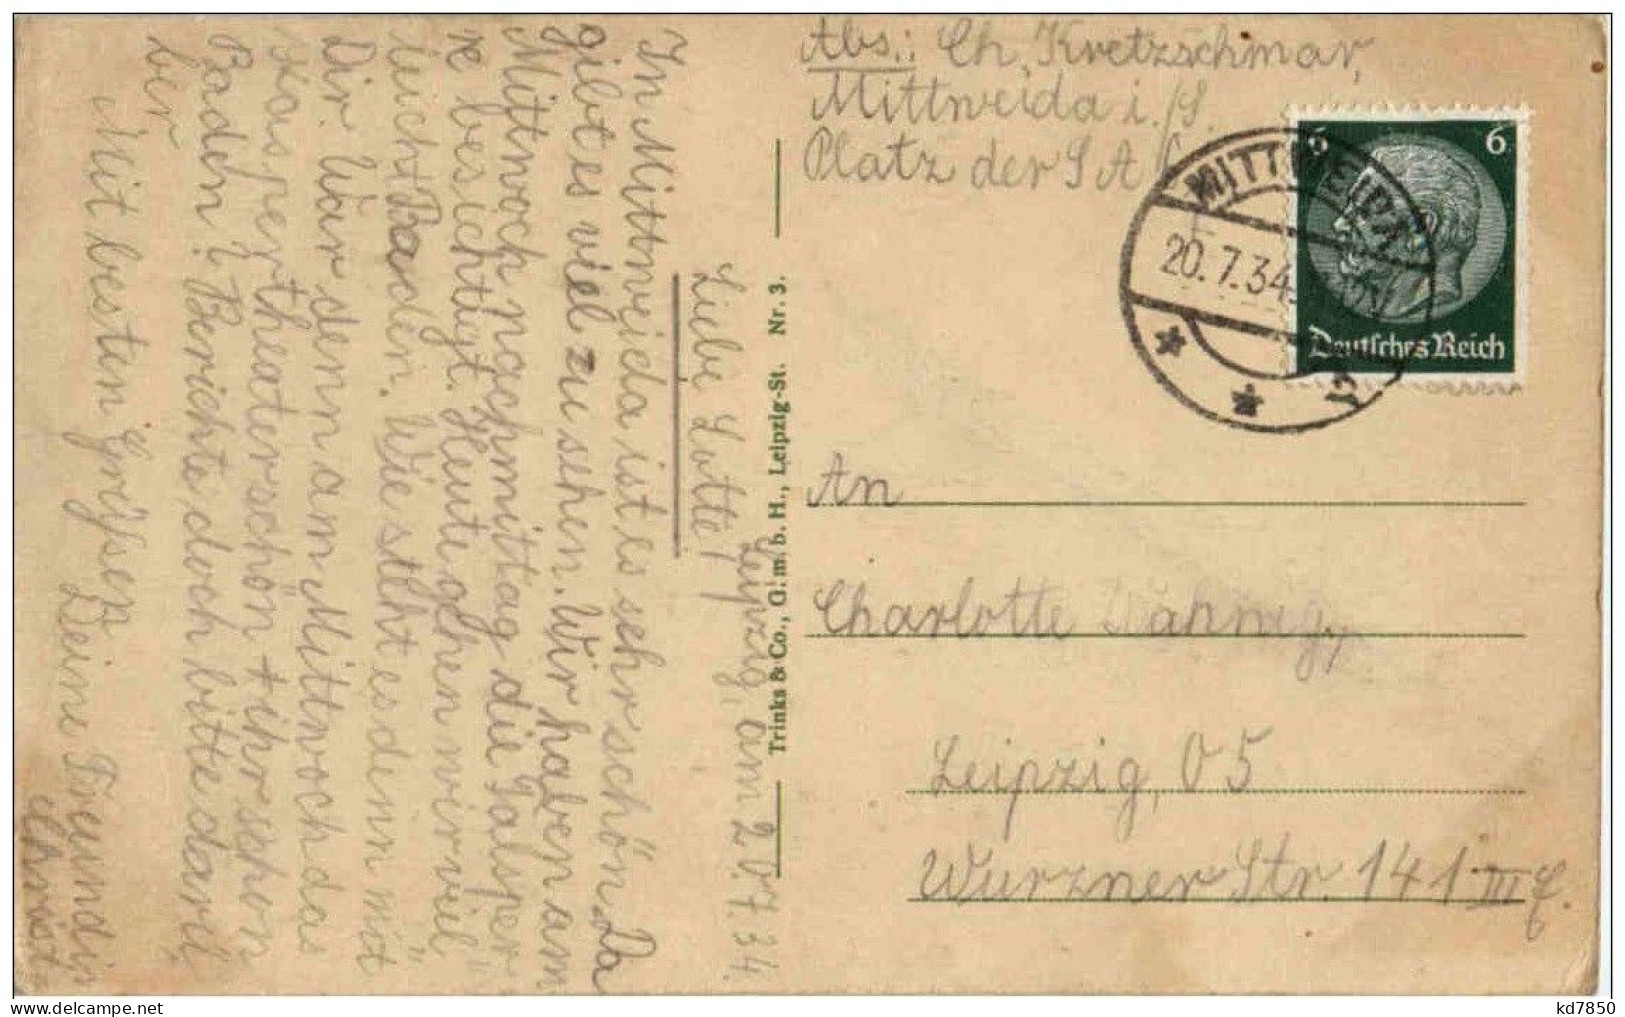 Leipzig, am 20.7.34.
Liebe Lotte!
In Mittweida ist es sehr schön. Da
gibt es viel zu sehen. Wir haben am
Mittwoch nachmittag die Talsper
re besichtigt. Heute gehen wir viel
leicht Baden. Wie steht es denn mit
Dir. War denn am Mittwoch das
Kaspertheater schön + ihr schon
Baden? Berichte doch bitte darü
ber
Mit besten Grüßen
Deine Freundin
Christ
Abs.: Ch. Kretzschmar,
Mittweida i./S.
Platz der S A
6 6
Deutsches Reich
MITTWEIDA
20.7.34
An
Charlotte
Leipzig, O 5
Wurzner Str. 141 III
Trinks & Co., G. m. b. H., Leipzig-St. Nr. 3.
kd7850